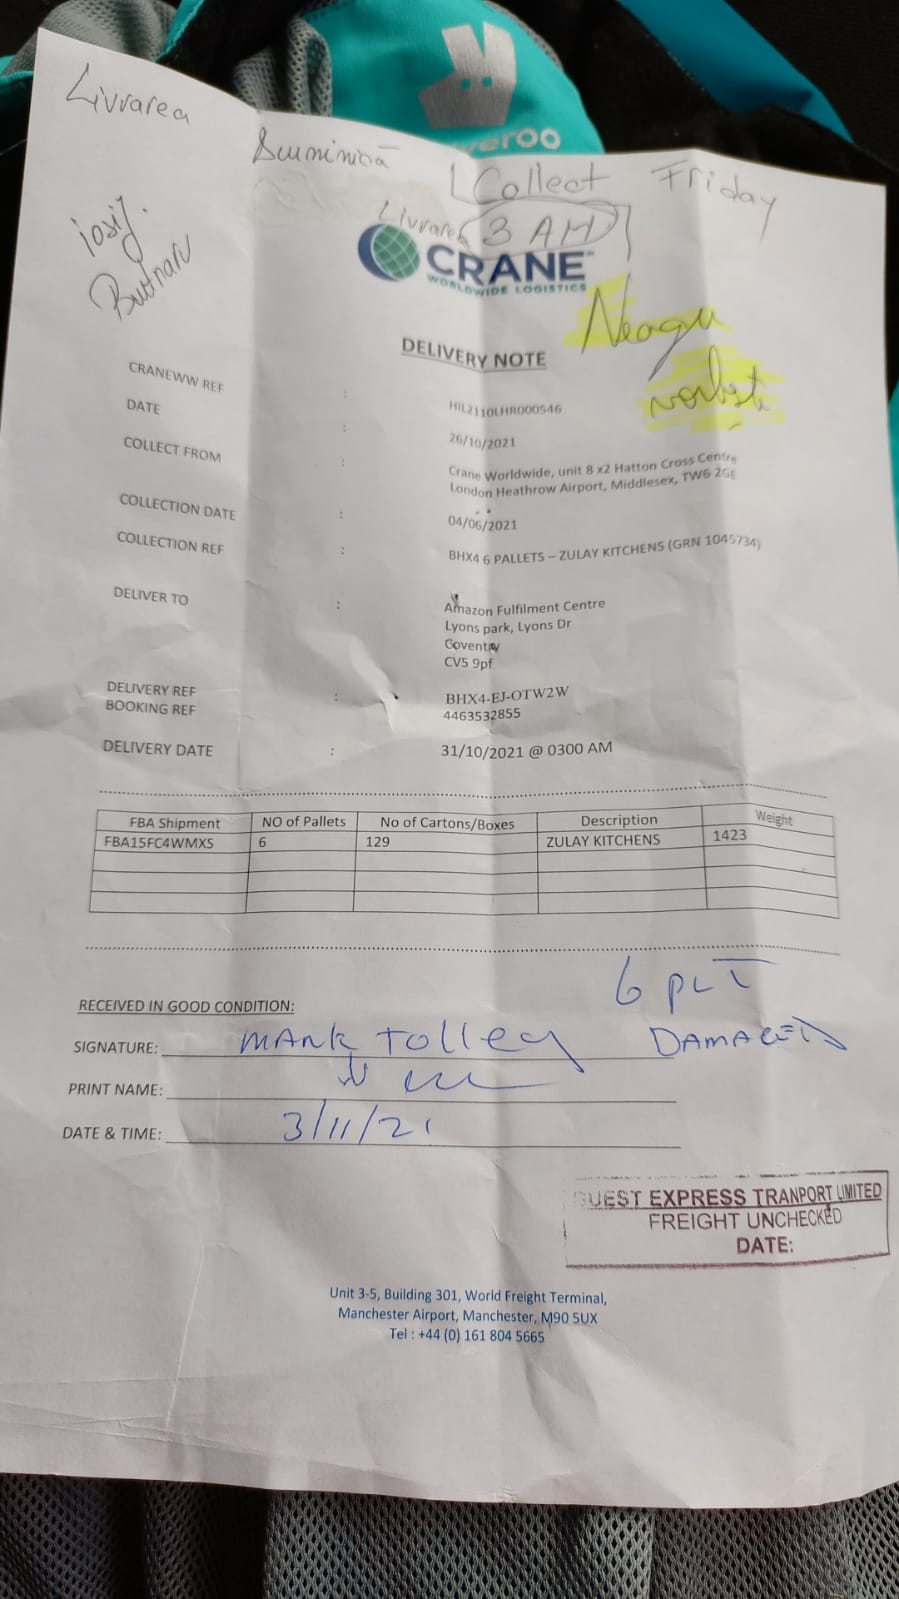 Livrarea
Duminică
Collect Friday
Livrarea 3 AM
iosif
Butnaru
CRANE
WORLDWIDE LOGISTICS
Neagu
DELIVERY NOTE
CRANEWW REF : HIL2110LHR000546
DATE : 26/10/2021
COLLECT FROM : Crane Worldwide, unit 8 x2 Hatton Cross Centre
London Heathrow Airport, Middlesex, TW6 2GE
COLLECTION DATE : 04/06/2021
COLLECTION REF : BHX4 6 PALLETS – ZULAY KITCHENS (GRN 1045734)
DELIVER TO : Amazon Fulfilment Centre
Lyons park, Lyons Dr
Coventry
CV5 9pf
DELIVERY REF : BHX4-EJ-OTW2W
BOOKING REF 4463532855
DELIVERY DATE : 31/10/2021 @ 0300 AM
FBA Shipment NO of Pallets No of Cartons/Boxes Description Weight
FBA15FC4WMXS 6 129 ZULAY KITCHENS 1423
6 PLT
DAMAGED
RECEIVED IN GOOD CONDITION:
SIGNATURE: MARK Tolley
PRINT NAME:
DATE & TIME: 3/11/21
GUEST EXPRESS TRANPORT LIMITED
FREIGHT UNCHECKED
DATE:
Unit 3-5, Building 301, World Freight Terminal,
Manchester Airport, Manchester, M90 5UX
Tel : +44 (0) 161 804 5665